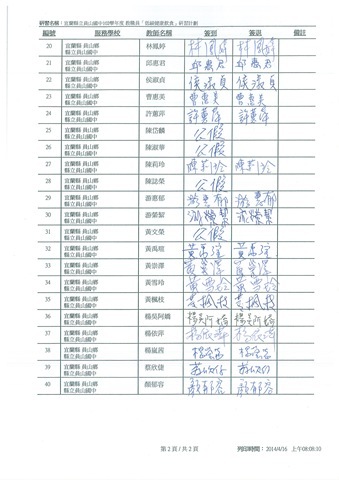 研習名稱：宜蘭縣立員山國中102學年度 教職員「低碳健康飲食」研習計劃
編號 服務學校 教師名稱 簽到 簽退 備註
20 宜蘭縣 員山鄉 縣立員山國中 林鳳婷
21 宜蘭縣 員山鄉 縣立員山國中 邱惠君 邱惠君 邱惠君
22 宜蘭縣 員山鄉 縣立員山國中 侯淑貞 侯淑貞 侯淑貞
23 宜蘭縣 員山鄉 縣立員山國中 曹惠美 曹惠美 曹惠美
24 宜蘭縣 員山鄉 縣立員山國中 許蕙萍 許蕙萍 許蕙萍
25 宜蘭縣 員山鄉 縣立員山國中 陳岱麟 公假
26 宜蘭縣 員山鄉 縣立員山國中 陳淑華 公假
27 宜蘭縣 員山鄉 縣立員山國中 陳莉玲 陳莉玲 陳莉玲
28 宜蘭縣 員山鄉 縣立員山國中 陳誌榮 公假
29 宜蘭縣 員山鄉 縣立員山國中 游惠郁 游惠郁 游惠郁
30 宜蘭縣 員山鄉 縣立員山國中 游縈絜
31 宜蘭縣 員山鄉 縣立員山國中 黃文榮 公假
32 宜蘭縣 員山鄉 縣立員山國中
33 宜蘭縣 員山鄉 縣立員山國中 黃崇澤
34 宜蘭縣 員山鄉 縣立員山國中 黃雪玲 黃雪玲 黃雪玲
35 宜蘭縣 員山鄉 縣立員山國中 黃楓枝 黃楓枝 黃楓枝
36 宜蘭縣 員山鄉 縣立員山國中 楊吳阿嬌 楊吳阿嬌 楊吳阿嬌
37 宜蘭縣 員山鄉 縣立員山國中 楊依萍
38 宜蘭縣 員山鄉 縣立員山國中 楊嵐茜
39 宜蘭縣 員山鄉 縣立員山國中 蔡欣倢
40 宜蘭縣 員山鄉 縣立員山國中 顏郁容 顏郁容 顏郁容
第 2 頁 / 共 2 頁 列印時間：2014/4/16 上午08:08:10